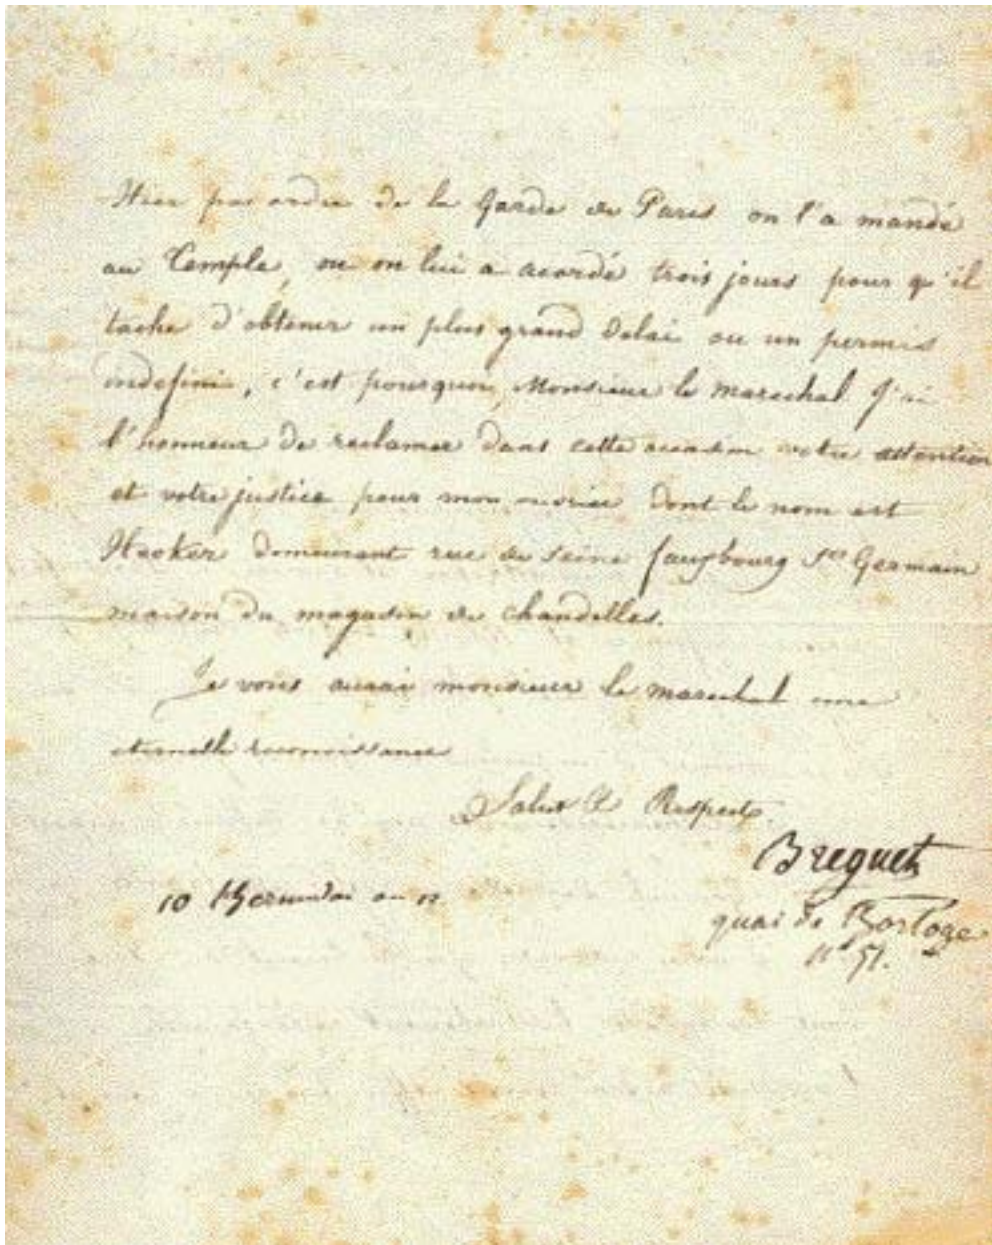 Hier par ordre de la Garde de Paris on l'a mandé
au Temple, ou on lui a acordé trois jours pour qu'il
tache d'obtenir un plus grand delai ou un permis
indefini, c'est pourquoi, Monsieur le marechal J'ai
l'honneur de reclamer dans cette occasion votre attention
et votre justice pour mon ouvrier dont le nom est
Hecker demeurant rue de Seine fauxbourg St Germain
maison du magasin de Chandelles.
Je vous aurai monsieur le marechal une
eternelle reconnoissance
Salut & Respect.
Breguet
10 thermidor an 12
quai de l'orloge
n° 51.